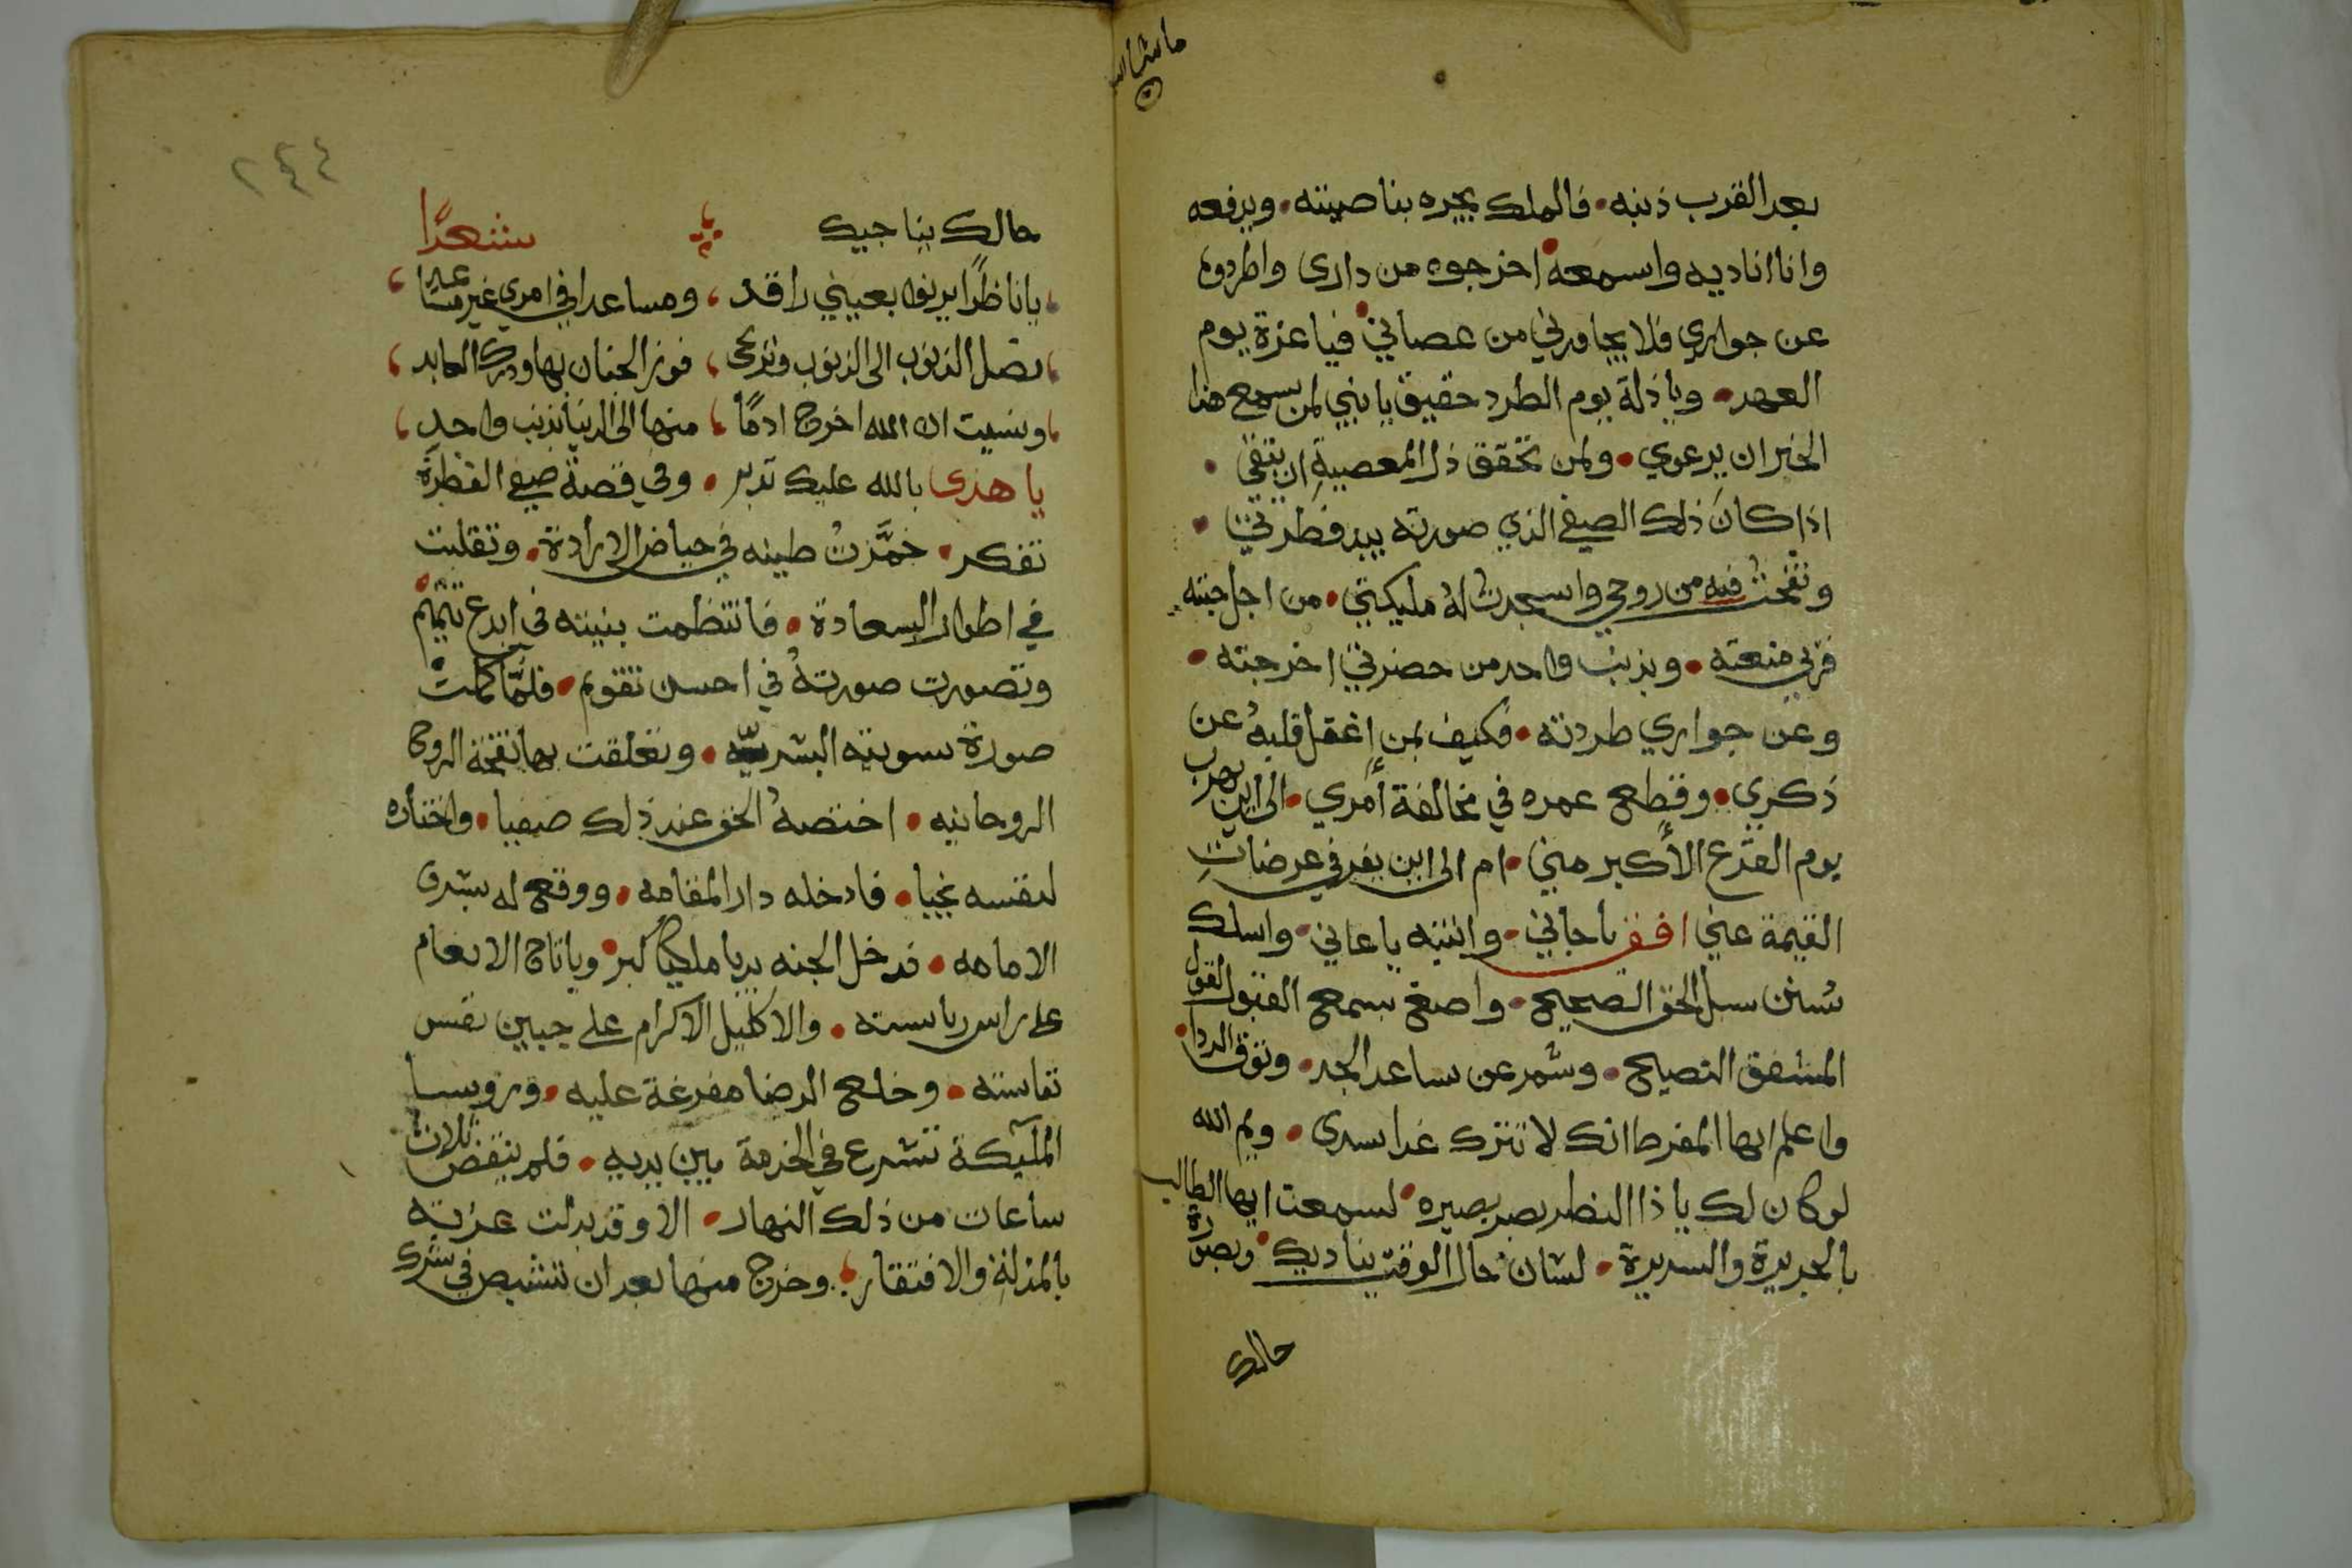 ما شا الله
بعد القرب ذنبه. فالملك يجره بناصيته. ويدفعه
وانا اناديه واسمعه اخرجوه من داري واطردوه
عن جواري فلا يجاورني من عصاني فيا عزة يوم
العهد. ويا ذلة يوم الطرد حقيق يا بني لمن يسمع هذا
الخبر ان يرعوي. ولمن تحقق ذل المعصية ان يتقي.
اذا كان ذلك الصفي الذي صورته بيد فطرتي.
ونفخت فيه من روحي واسجدت له مليكتي. من اجل حبته
قربي منعته. وبذنب واحد من حضرتي اخرجته.
وعن جواري طردته. فكيف بمن اغفل قلبه عن
ذكري. وقطع عمره في مخالفة أمري. الى اين يهرب
يوم الفزع الأكبر مني. ام الى اين يفر في عرضات
القيمة عني افق يا جاني. وانتبه يا عاني. واسلك
سنن سبل الحق الصحيح. واصغ بسمع القبول لقول
المشفق النصيح. وشمر عن ساعد الجد. وتوق الردا.
واعلم ايها المفرط انك لا تترك غدا سدى. ويم الله
لو كان لك يا ذا النظر بصر بصيره لسمعت ايها الطالب
بالجريرة والسريرة. لسان حال الوقت يناديك. وبصورة
حالك
٢٤٤
حالك يناجيك شعرًا
يا ناظرًا يرنوا بعيني راقد، ومساعدا في امري غير مساعد،
تصل الذنوب الى الذنوب وترتجى، فوز الجنان بها ودرك العابد،
ونسيت ان الله اخرج ادمًا، منها الى الدنيا بذنب واحد،
يا هذى بالله عليك تدبر. وفي قصة صفي الفطرة
تفكر. خمّرت طينه في حياض الارادة. وتقلبت
في اطوار السعادة. فانتظمت بنيته في ابدع تتميم
وتصورت صورته في احسن تقويم. فلمّا كملت
صورة سويته البشريّه. وتعلقت بها نفخة الروح
الروحانيه. اختصه الحق عند ذلك صفيا. واختاره
لنفسه نجيا. فادخله دار المقامه. ووقع له بشرى
الامامه. فدخل الجنه يد يا ملكها كبر. ويا تاج الانعام
على راس رياسته. والاكليل الاكرام على جبين نفس
نفاسته. وخلع الرضا مفرغة عليه. ورويسا
المليكة تتشرع في الخدمة بين يديه. فلم ينقض ثلاث
ساعات من ذلك النهار. الا وقد بدلت عزته
بالمذلة والافتقار. وخرج منها بعد ان تنشيص في شرك